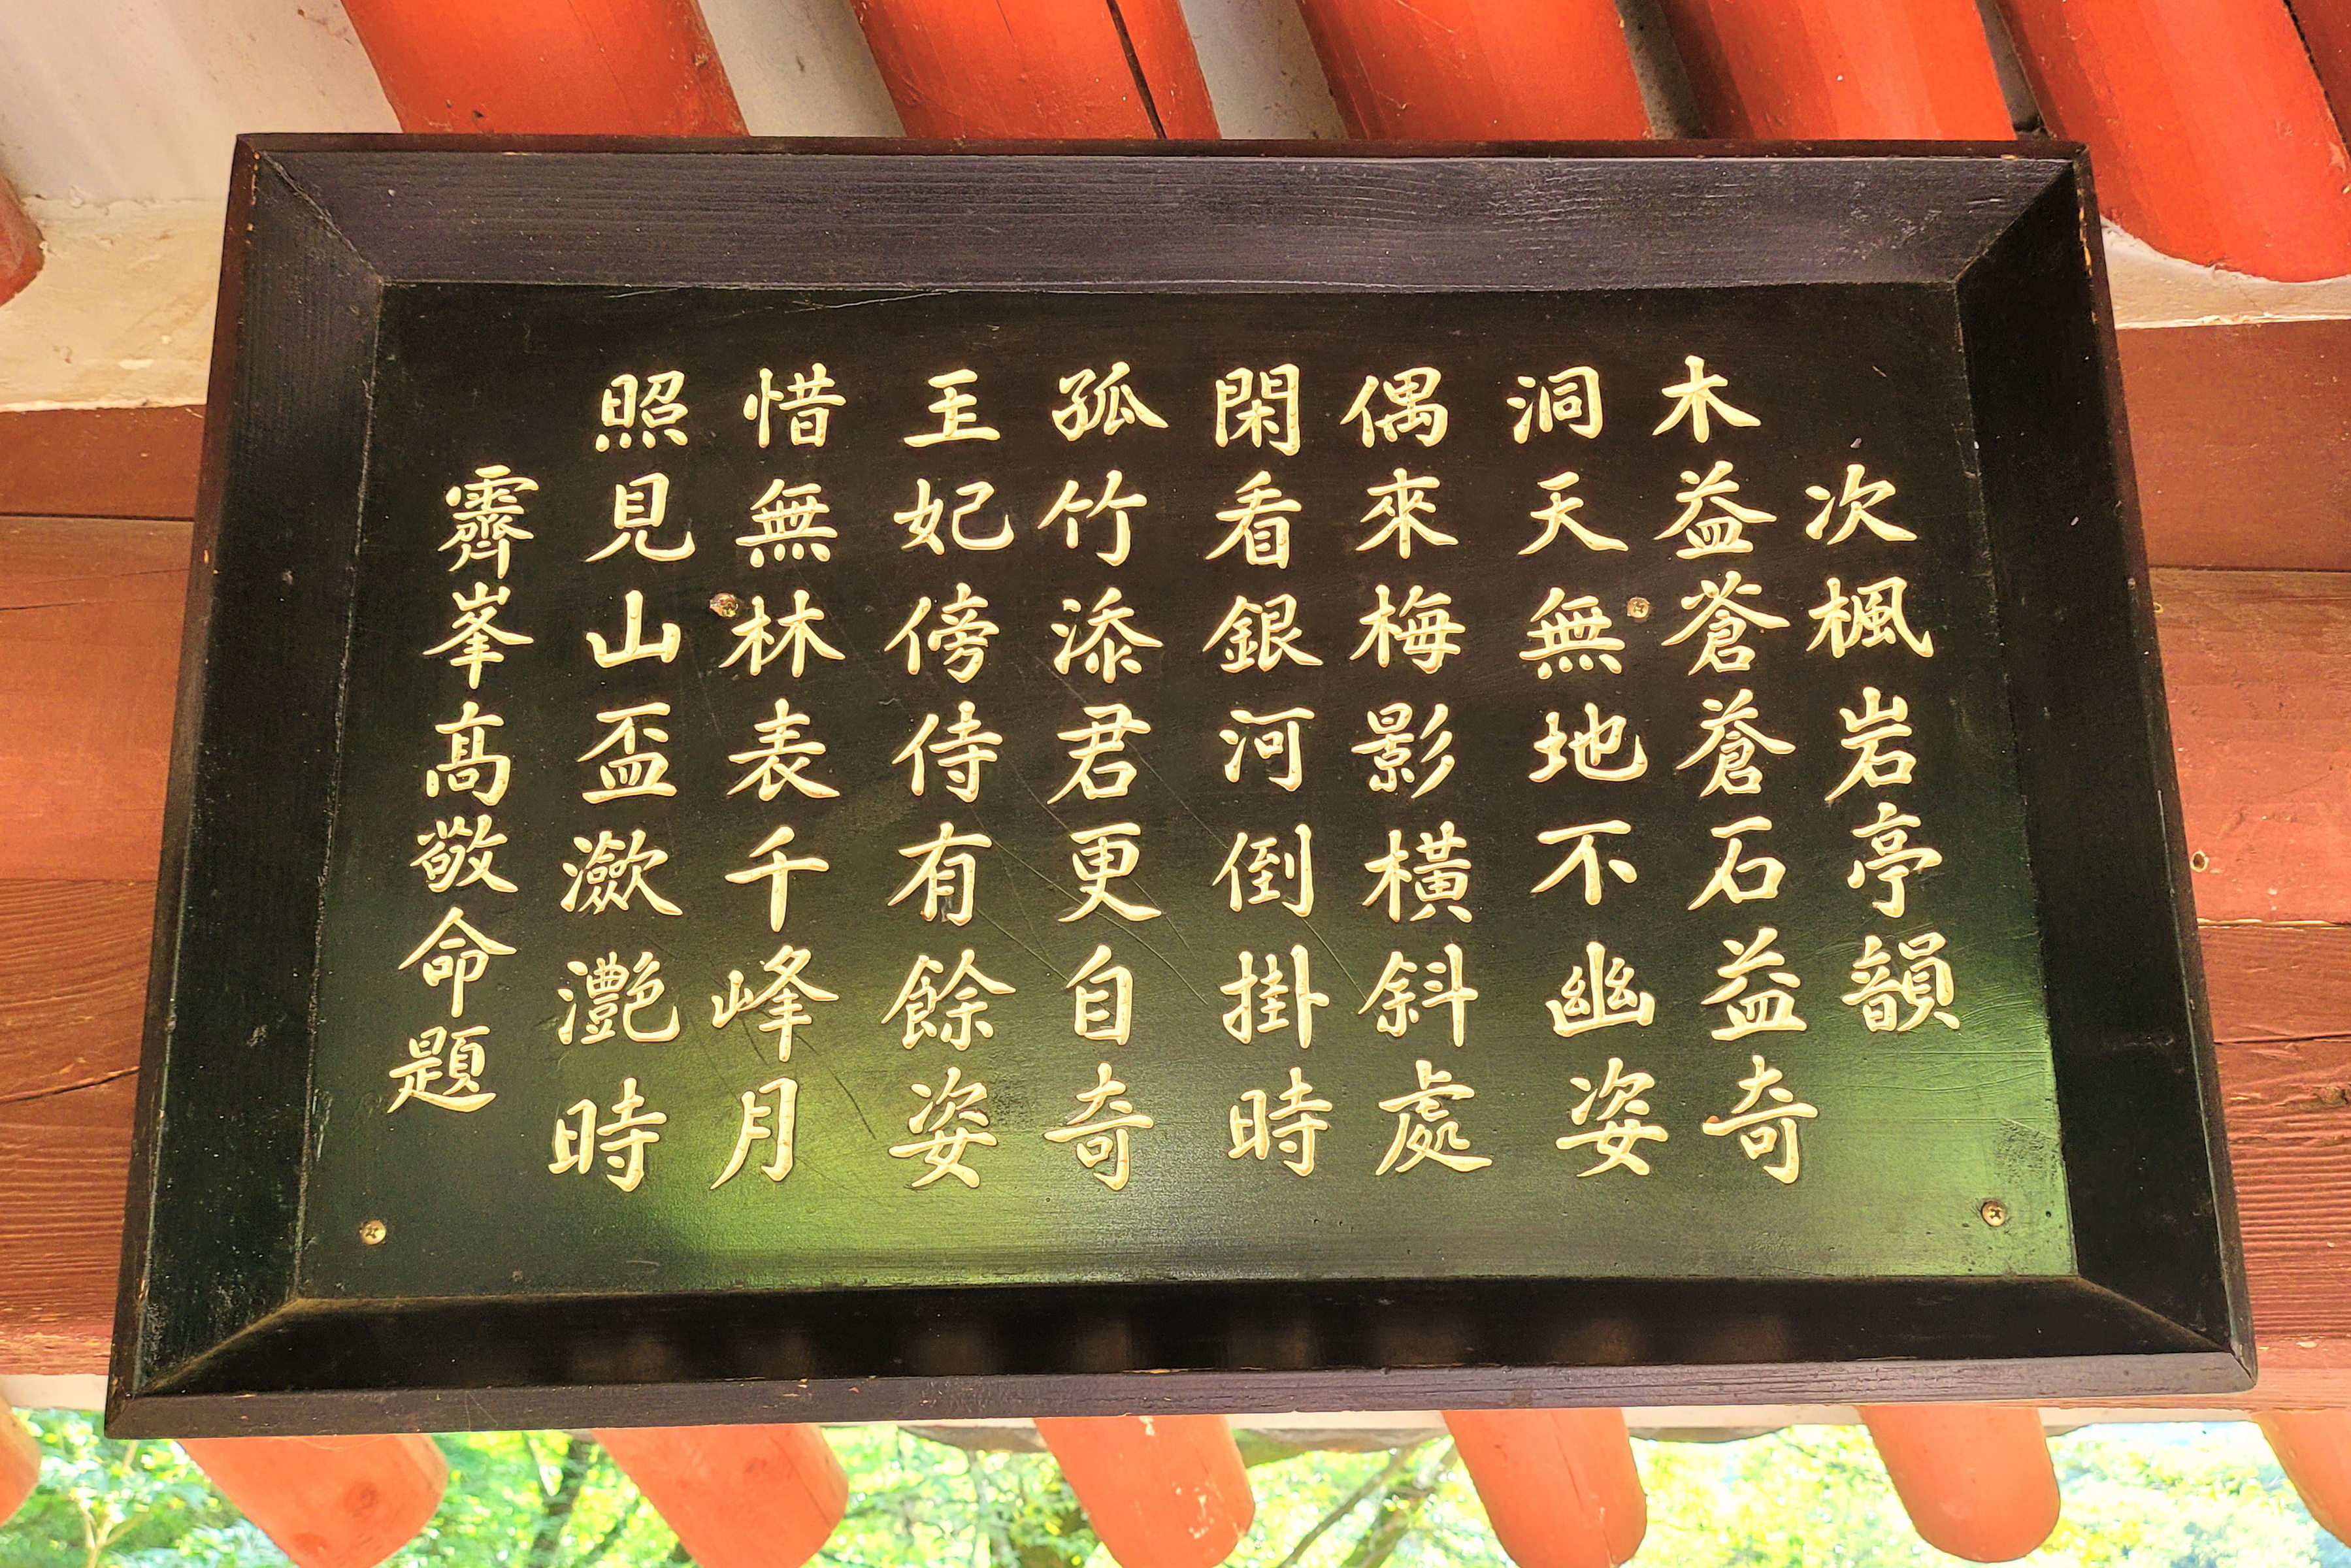 次楓岩亭韻
木益蒼蒼石益奇
洞天無地不幽姿
偶來梅影橫斜處
閑看銀河倒掛時
孤竹添君更自奇
王妃傍侍有餘姿
惜無林表千峰月
照見山盃瀲灩時
霽峯高敬命題